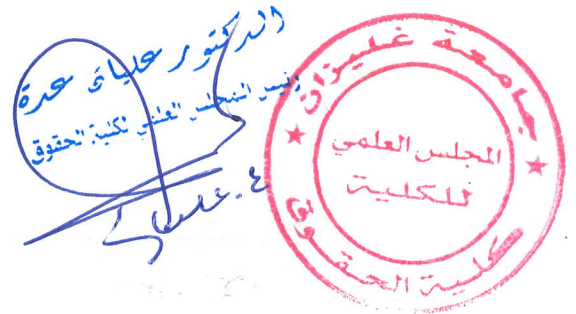 الدكتور عليان عدة
رئيس المجلس العلمي لكلية الحقوق
ع. عليان
جامعة غليزان
المجلس العلمي
للكلية
كلية الحقوق